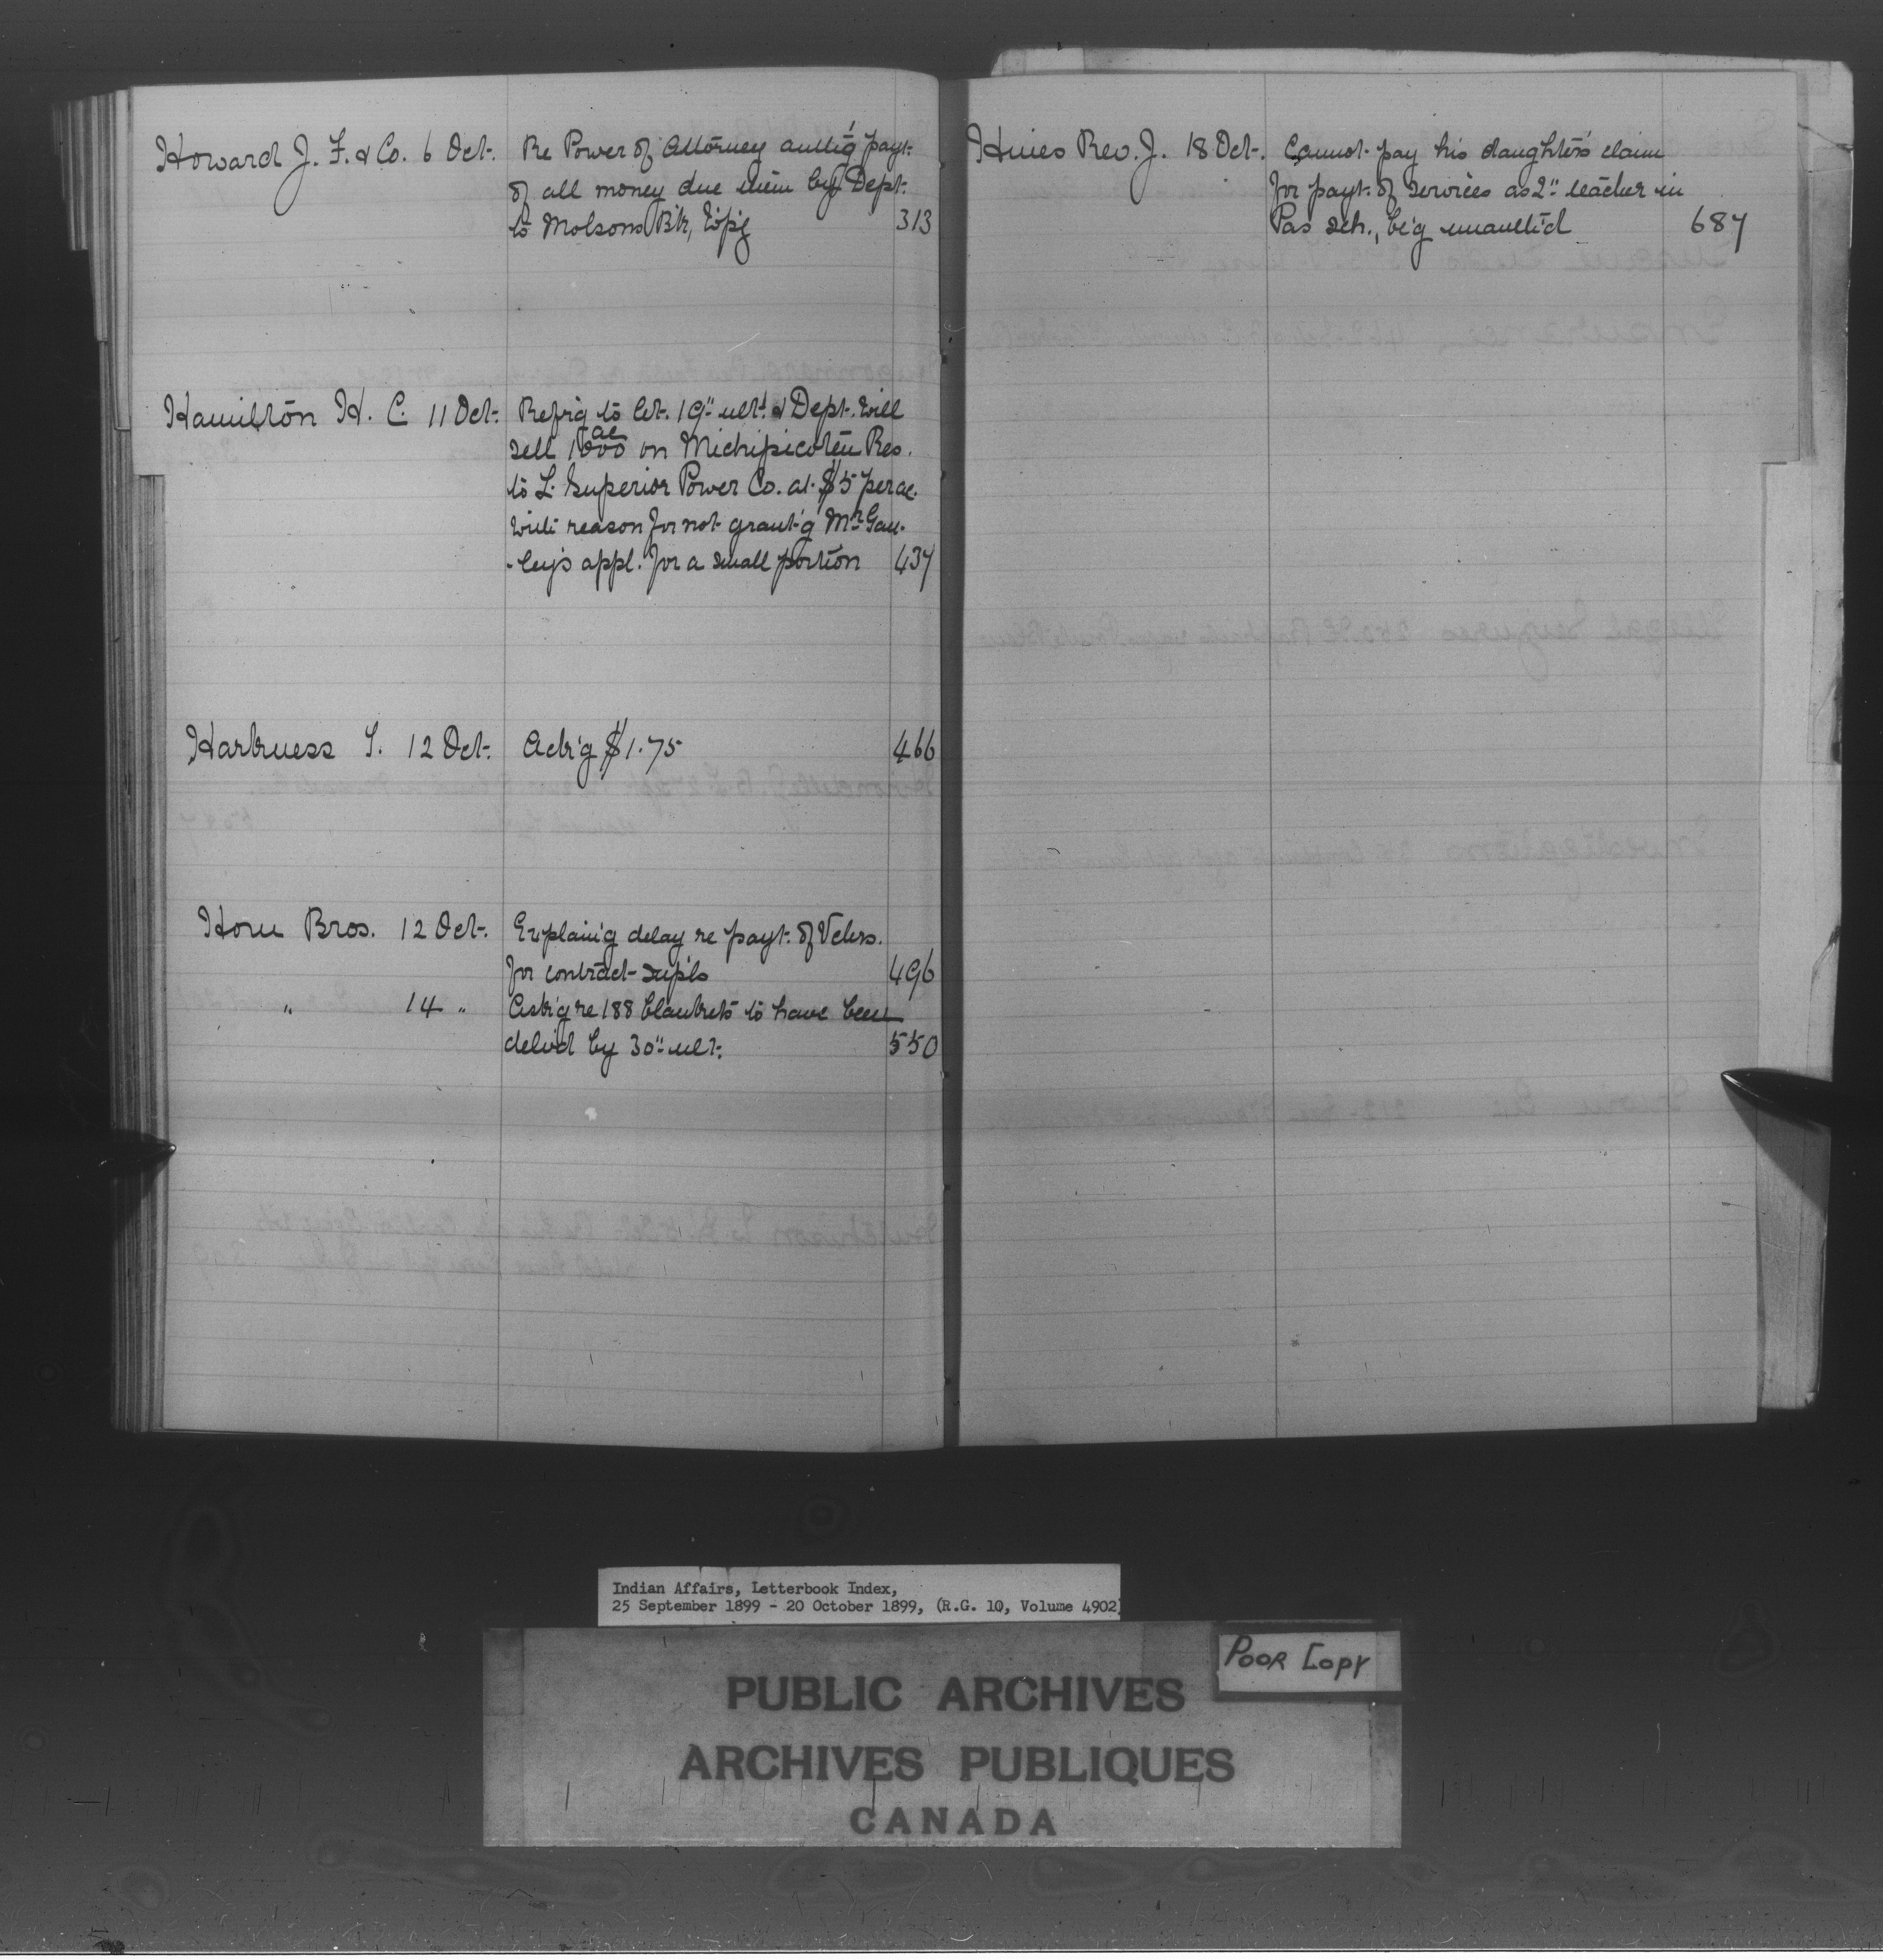 Howard J. F. & Co. 6 Oct. Re Power of Attorney auth'g payt.
of all money due them by Dept.
to Molsons B'k, W'p'g 313
Hamilton H. C. 11 Oct. Ref'r'g to let. 19" ult. & Dept. will
sell 1000 ac on Michipicoten Res.
to L. Superior Power Co. at $5 per ac.
with reason for not grant'g Mr. Gan-
-ley's appl. for a small portion 437
Harkness T. 12 Oct. Ack'g $1.75 466
Horn Bros. 12 Oct. Explain'g delay re payt. of Vchrs.
for contract sup'ls 496
" 14 " Ask'g re 188 blankets to have been
deliv'd by 30" ult. 550
Hines Rev. J. 18 Oct. Cannot pay his daughter's claim
for payt. of services as 2" teacher in
Pas Sch., be'g unauth'd 687
Indian Affairs, Letterbook Index,
25 September 1899 - 20 October 1899, (R.G. 10, Volume 4902)
POOR COPY
PUBLIC ARCHIVES
ARCHIVES PUBLIQUES
CANADA